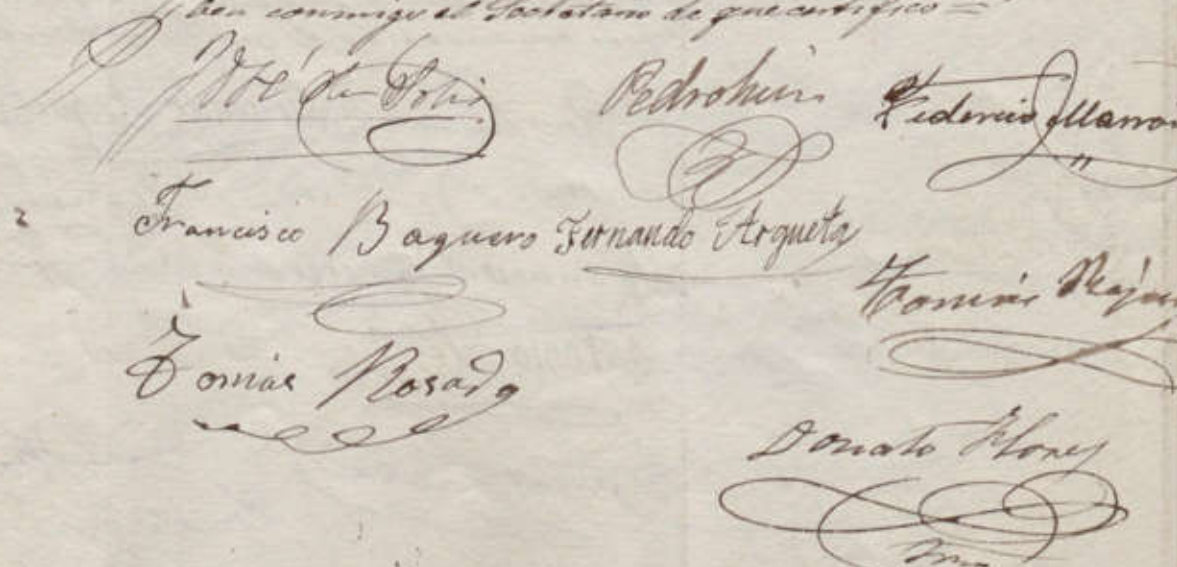 ben conmigo el Secretario de que certifico =
José Solis
Pedro
Federico
Francisco Baquero Fernando Argueta
Tomás
Tomás Rosado
Donato Flores